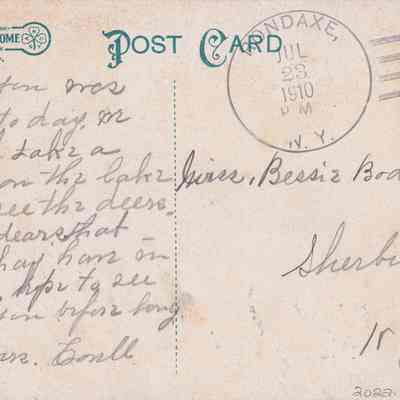 OME
POST CARD
ONDAXE,
JUL
23
1910
N. Y.
to day
take a
on the lake
see the deers.
dears that
they have in
hope to see
before long
Miss, Bessie Bod
Sherb
N
2022.